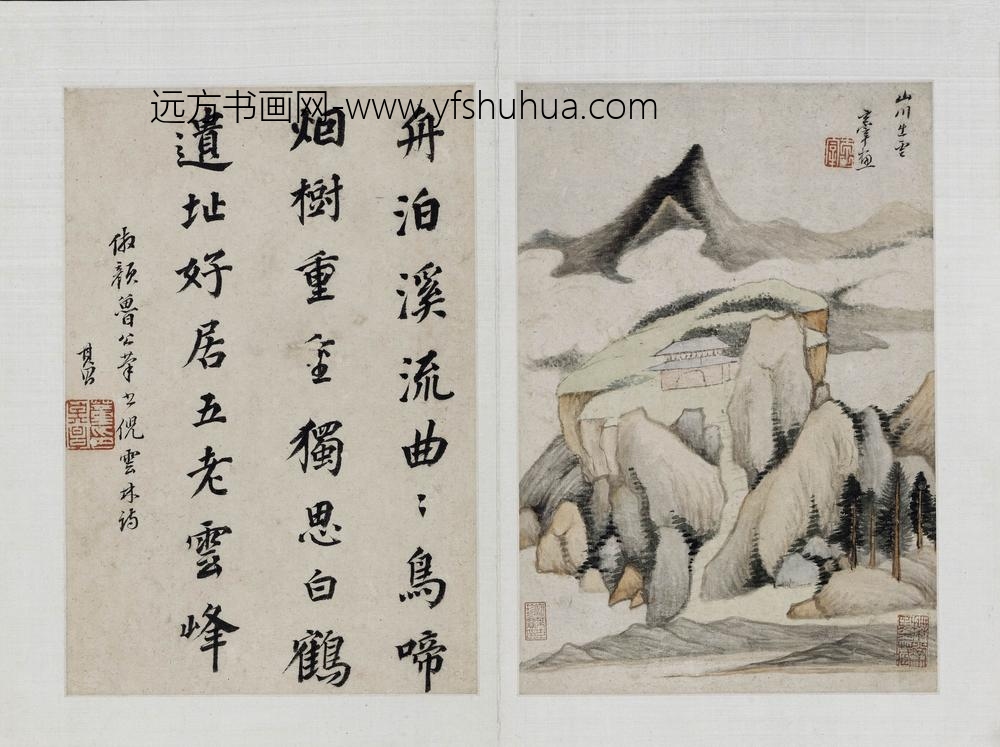 远方书画网 www.yfshuhua.com
山川出雲
玄宰畫
舟泊溪流曲〻鳥啼
烟樹重重獨思白鶴
遺址好居五老雲峰
倣顏魯公筆書倪雲林詩
其昌